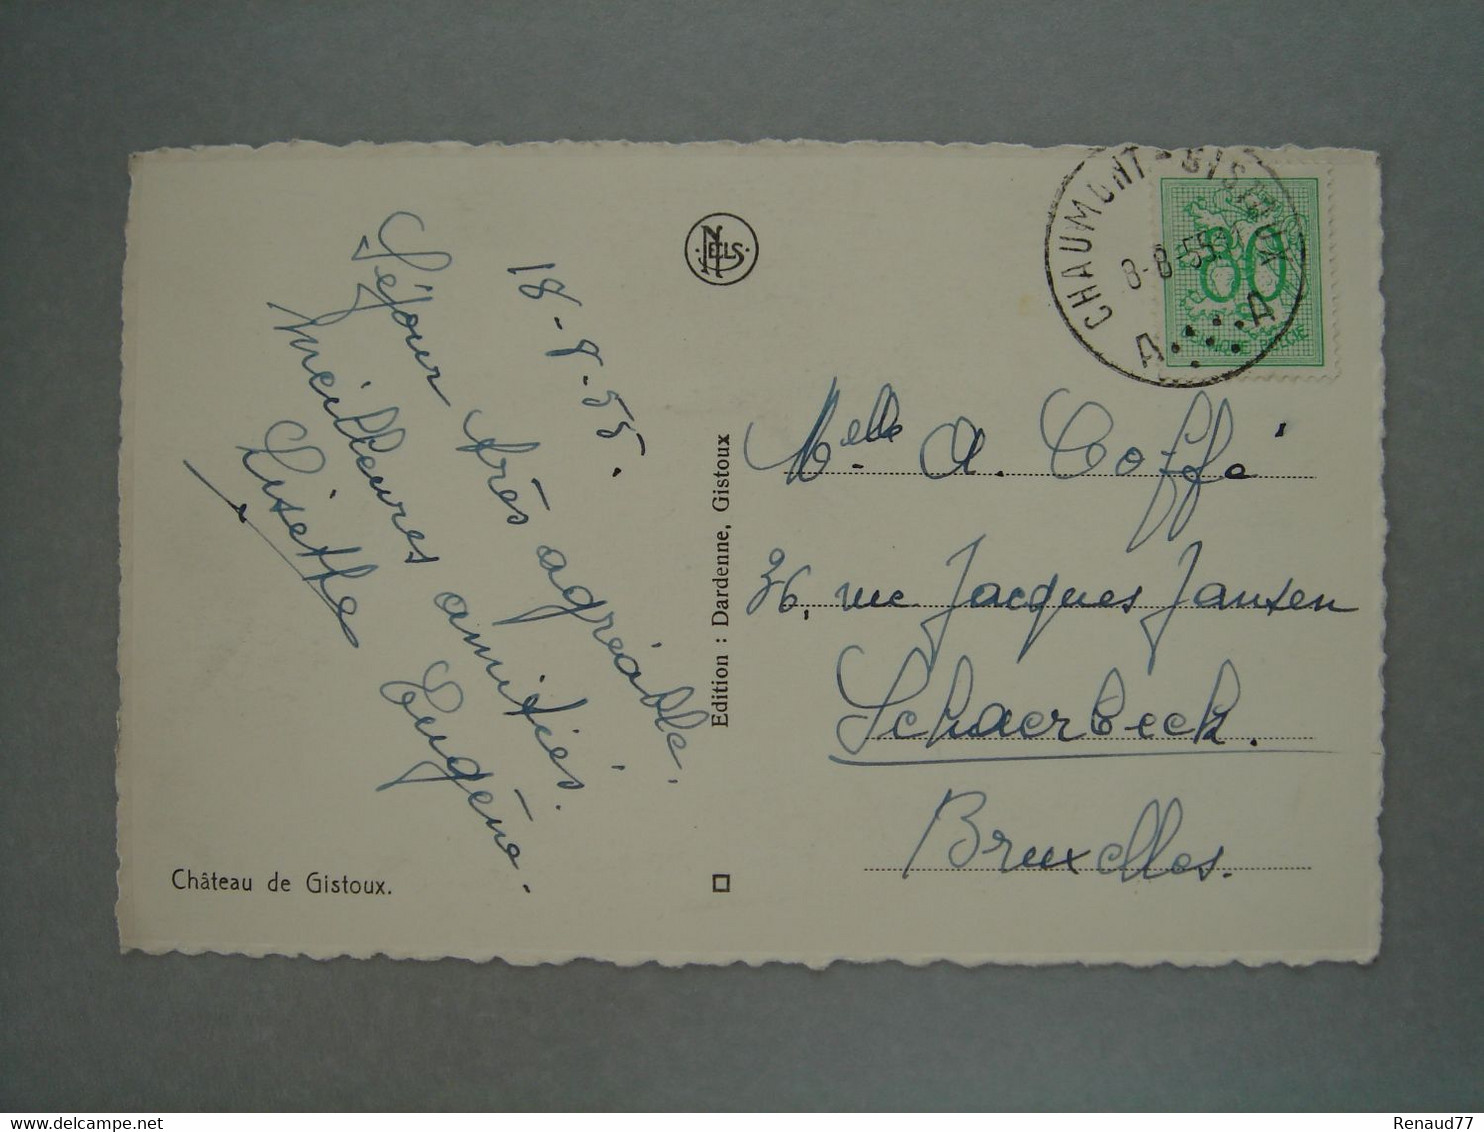 18-8-55.
Séjour très agréable.
Meilleures amitiés.
Lisette Eugène.
Château de Gistoux.
NELS
Edition : Dardenne, Gistoux
CHAUMONT-GISTOUX
8-8-55
A A
80
Melle A. Coffé
36, rue Jacques Jansen
Schaerbeek.
Bruxelles.
delcampe.net
Renaud77